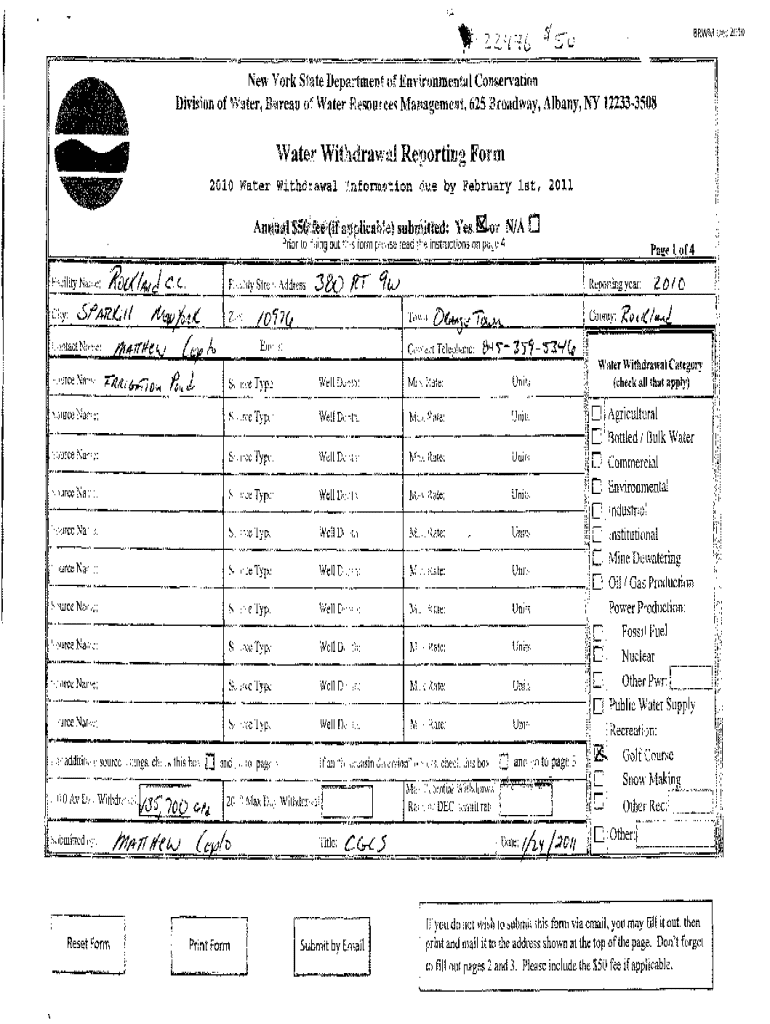 # 22476 $50
BRWM Dec 2010
New York State Department of Environmental Conservation
Division of Water, Bureau of Water Resources Management, 625 Broadway, Albany, NY 12233-3508
Water Withdrawal Reporting Form
2010 Water Withdrawal Information due by February 1st, 2011
Annual $50 fee (if applicable) submitted: Yes ☒ or N/A ☐
Prior to filling out this form please read the instructions on page 4
Page 1 of 4
Facility Name: Rockland C.C. Facility Street Address: 380 RT 9W Reporting year: 2010
City: SPARKill New York Zip: 10976 Town: Orange Town County: Rockland
Contact Name: MATTHEW Email: Contact Telephone: 845-359-5346
Water Withdrawal Category
(check all that apply)
Source Name: IRRIGATION Pond Source Type: Well Depth: Max Rate: Units
Source Name: Source Type: Well Depth: Max Rate: Units
Source Name: Source Type: Well Depth: Max Rate: Units
Source Name: Source Type: Well Depth: Max Rate: Units
Source Name: Source Type: Well Depth: Max Rate: Units
Source Name: Source Type: Well Depth: Max Rate: Units
Source Name: Source Type: Well Depth: Max Rate: Units
Source Name: Source Type: Well Depth: Max Rate: Units
Source Name: Source Type: Well Depth: Max Rate: Units
Source Name: Source Type: Well Depth: Max Rate: Units
☐ Agricultural
☐ Bottled / Bulk Water
☐ Commercial
☐ Environmental
☐ Industrial
☐ Institutional
☐ Mine Dewatering
☐ Oil / Gas Production
Power Production:
☐ Fossil Fuel
☐ Nuclear
☐ Other Pwr:
☐ Public Water Supply
Recreation:
☒ Golf Course
☐ Snow Making
☐ Other Rec:
☐ Other:
additional source check this box ☐ and go to page check this box ☐ and go to page 3
2010 Av Day Withdrawal 135,700 GPD 2010 Max Day Withdrawal
Submitted by: MATTHEW Title: CGCS Date: 1/24/2011
Reset Form
Print Form
Submit by Email
If you do not wish to submit this form via email, you may fill it out, then
print and mail it to the address shown at the top of the page. Don't forget
to fill out pages 2 and 3. Please include the $50 fee if applicable.